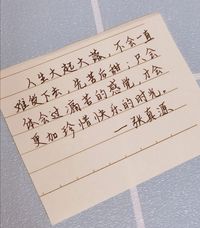 人生大起大落，不会一直
难受下去，先苦后甜；只会
体会过痛苦的感觉，方会
更加珍惜快乐的时光。
一张真源